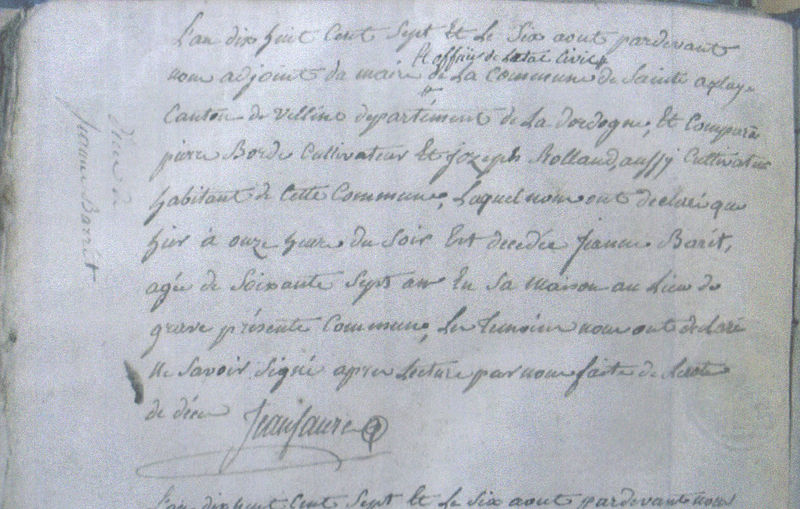 L'an dix huit Cent Sept Et Le Six aout pardevant
Et officier de Letat Civil
nous adjoint du maire de La Commune de Sainte aulaye
Canton de velline departément de La dordogne, Et Comparu
pierre Borde Cultivateur Et Jozeph Rolland, aussy Cultivateur
habitant de Cette Commune, Laquel nous ont declaré que
hier à onze heure du Soir Est decedée Jeanne Barét,
agée de Soixante Sept ans En Sa maison au Lieu de
grave présente Commune, Les temoins nous ont declaré
Ne Savoir Signé apres Lecture par nous faite de Lacte
de décé
Jean faure
décé de
Jeanne Barrét
L'an dix huit Cent Sept Et Le Six aout pardevant nous